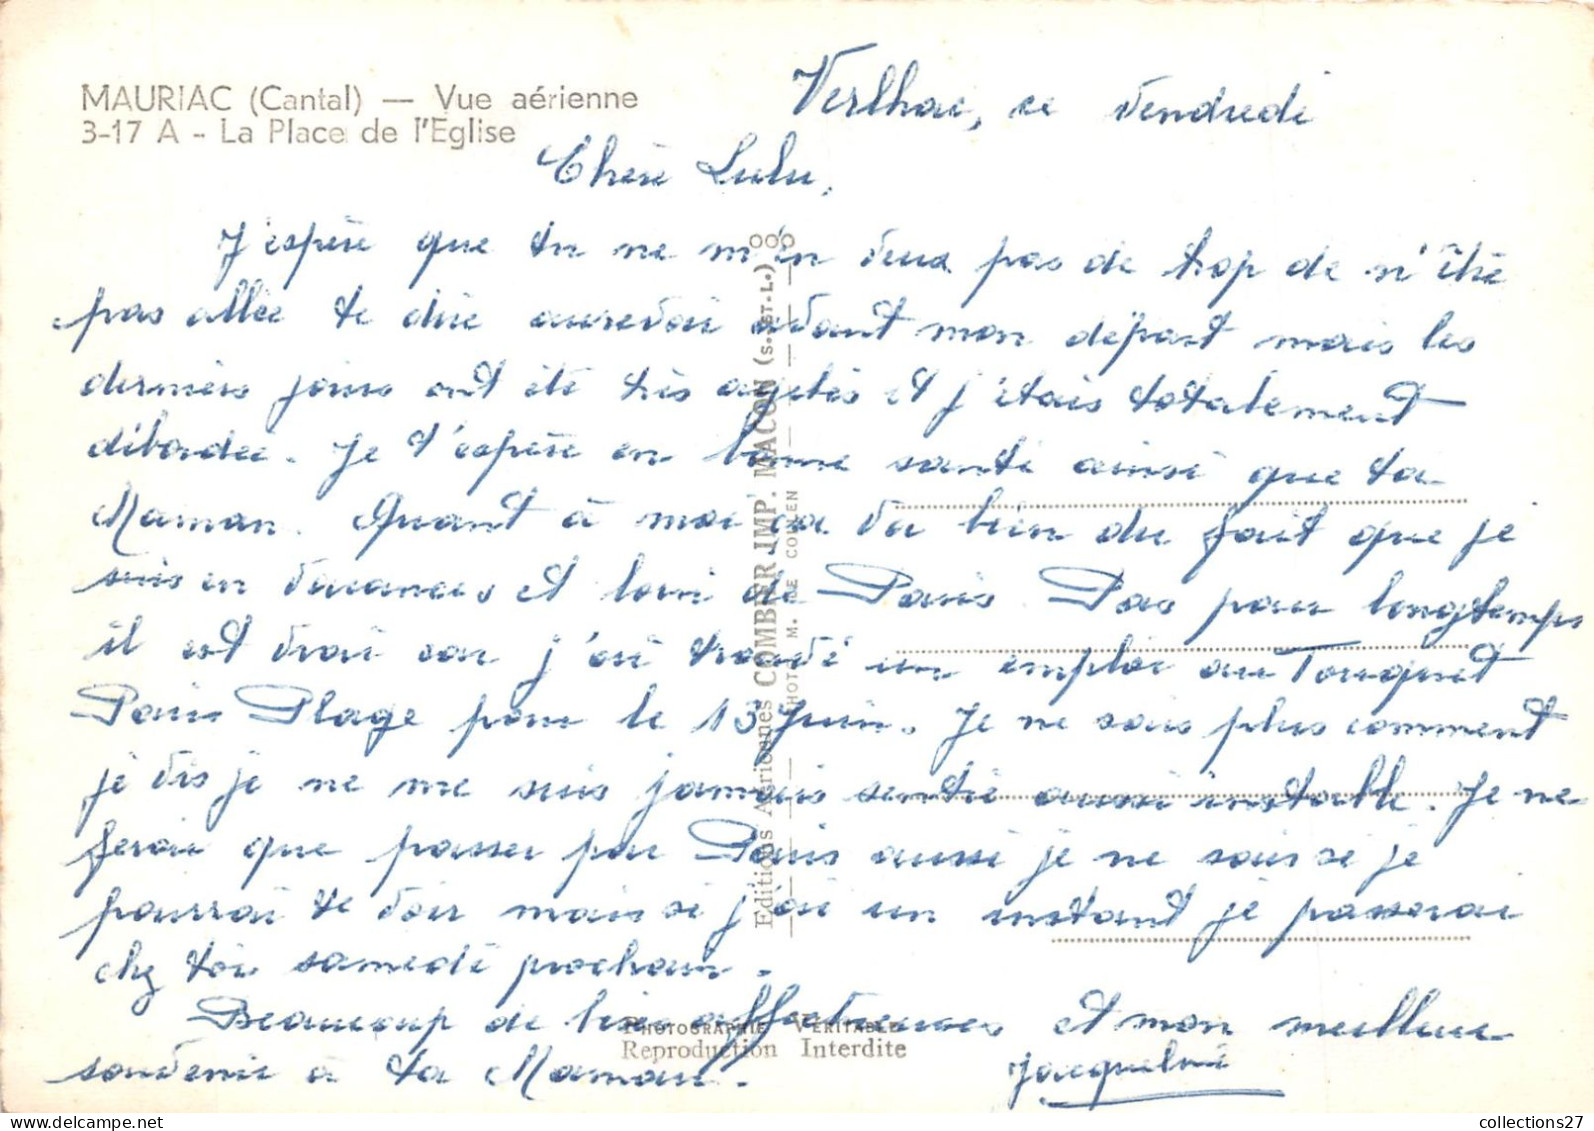 MAURIAC (Cantal) — Vue aérienne
3-17 A - La Place de l'Eglise
Verlhac, ce Vendredi
Chère Lulu,
J'espère que tu ne m'en veux pas de trop de n'être
pas allée te dire aurevoir avant mon départ mais les
derniers jours ont été très agités et j'étais totalement
débordée. Je t'espère en bonne santé ainsi que ta
Maman. Quant à moi ça va bien du fait que je
suis en vacances et loin de Paris. Pas pour longtemps
il est vrai car j'ai trouvé un emploi au Touquet
Paris Plage pour le 13 Juin. Je ne sais plus comment
je vis je ne me suis jamais sentie aussi instable. Je ne
ferai que passer par Paris aussi je ne sais si je
pourrai te voir mais si j'ai un instant je passerai
chez toi samedi prochain.
Beaucoup de bises affectueuses et mon meilleur
souvenir à ta Maman.
Jacqueline
Editions Aériennes COMBIER IMP. MACON (S.-ET-L.)
PHOT. M. DE COULEN
PHOTOGRAPHIE VÉRITABLE
Reproduction Interdite
collections27